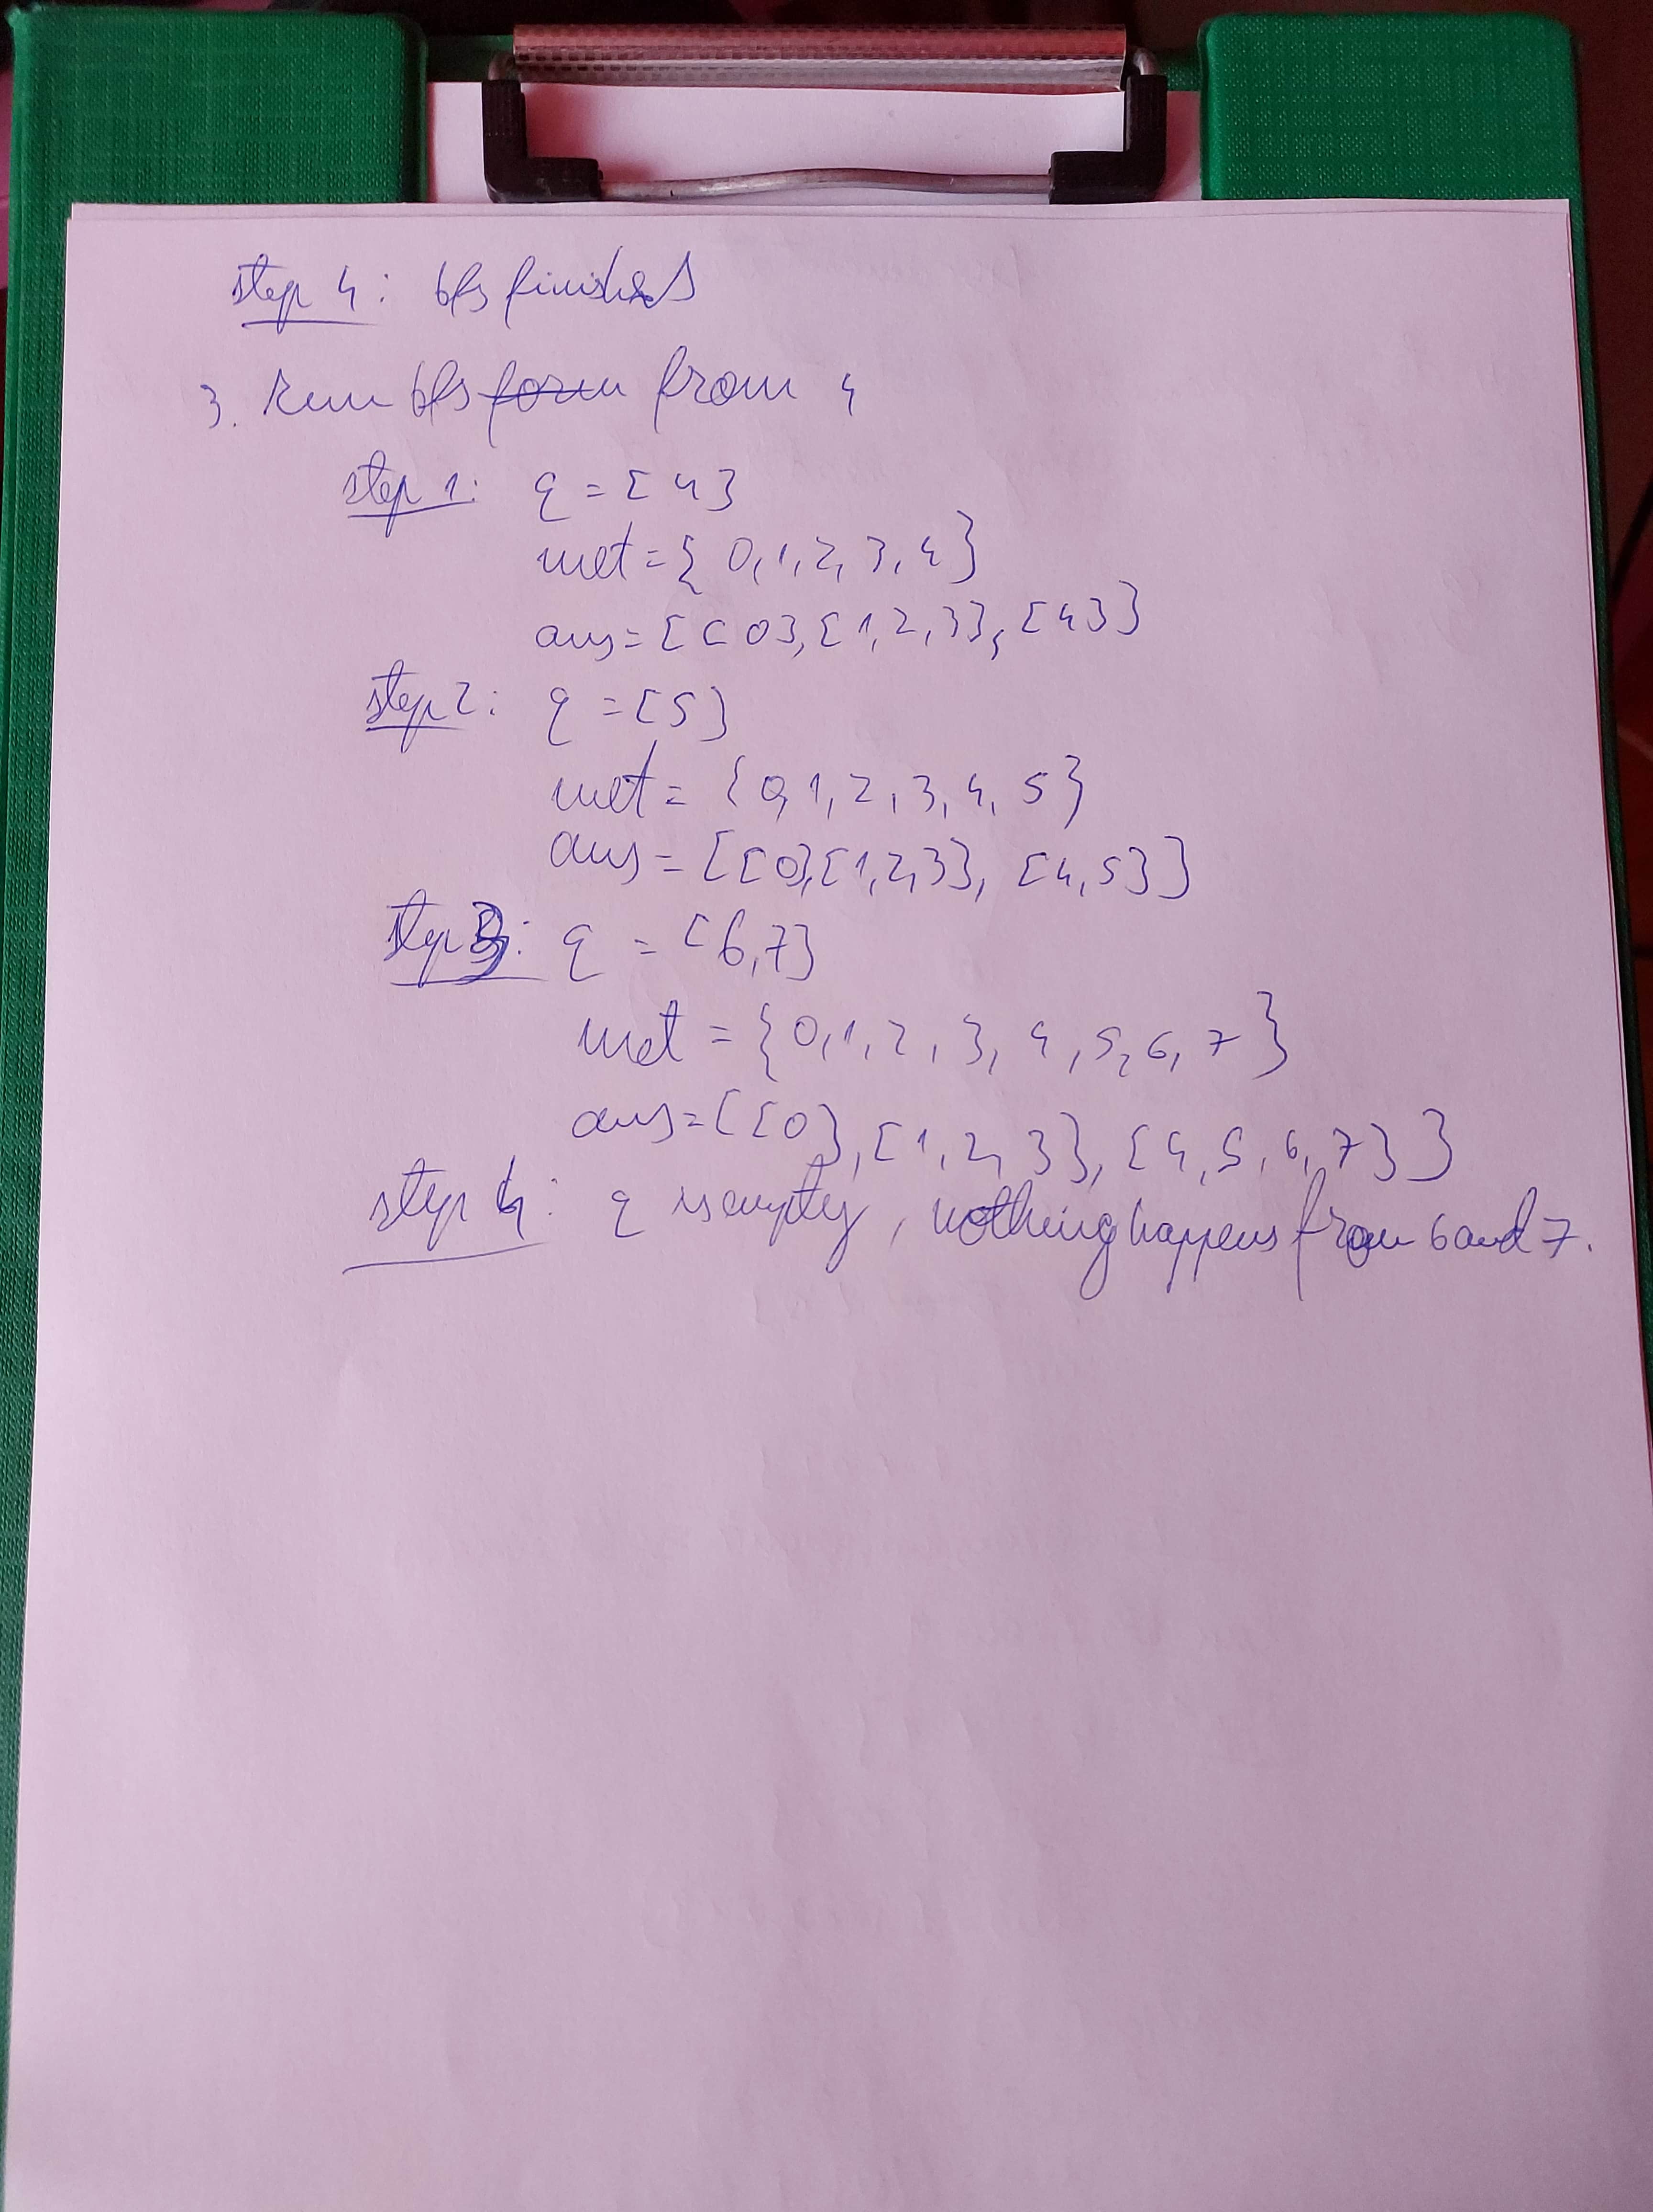 step 4: bfs finished
3. Run bfs form from 4
step 1: q = [4]
met = {0,1,2,3,4}
ans = [[0],[1,2,3],[4]]
step 2: q = [5]
met = {0,1,2,3,4,5}
ans = [[0],[1,2,3],[4,5]]
step 3: q = [6,7]
met = {0,1,2,3,4,5,6,7}
ans = [[0],[1,2,3],[4,5,6,7]]
step 4: q is empty, nothing happens from 6 and 7.